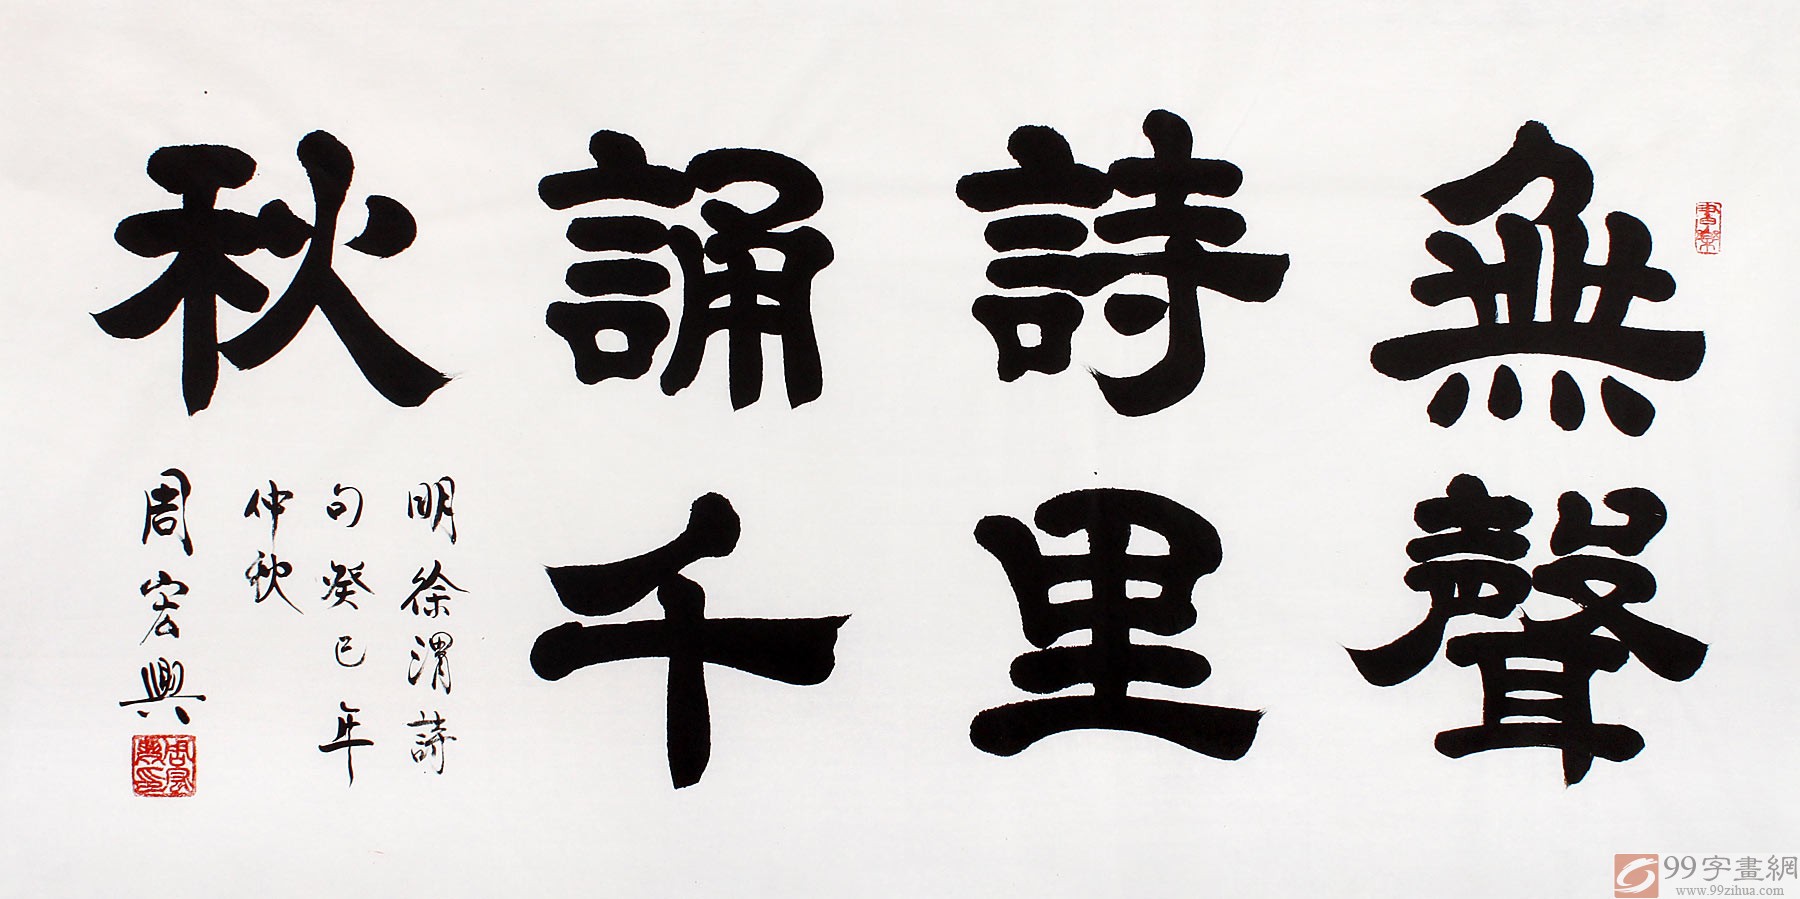 無聲
詩里
誦千
秋
明徐渭詩
句癸巳年
仲秋
周宏興
周宏興印
99字畫網
www.99zihua.com